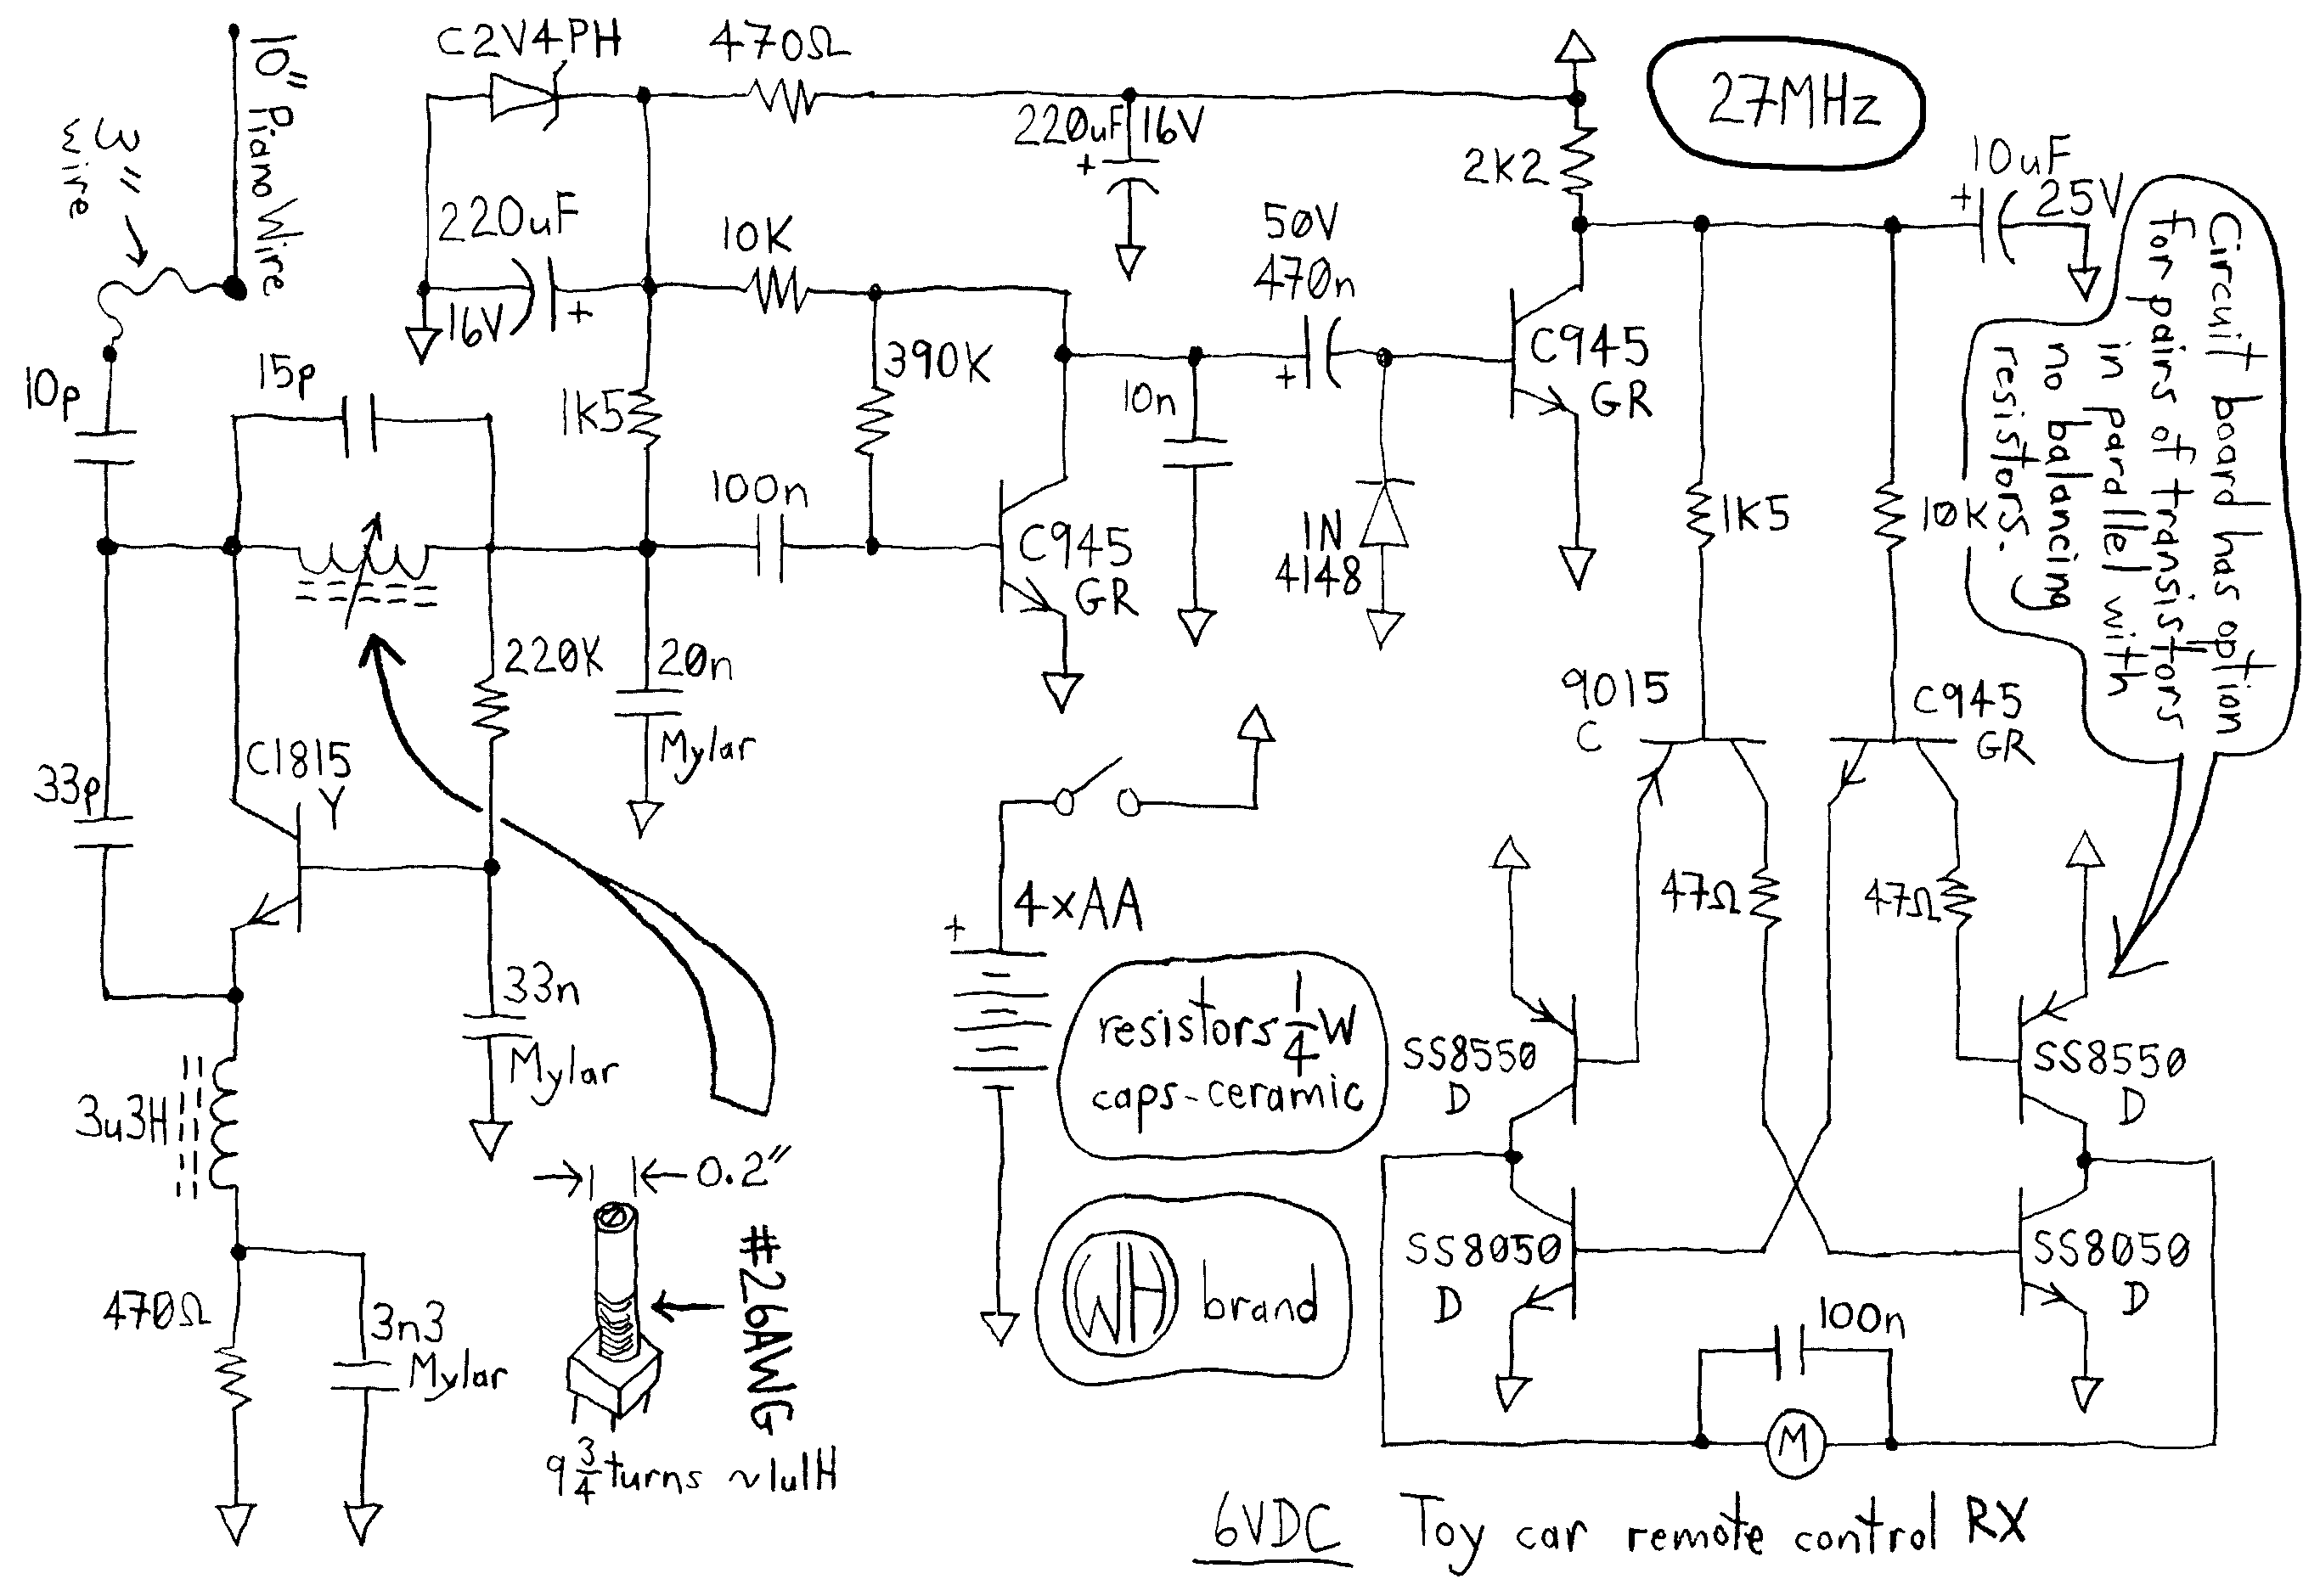 10" Piano Wire
3"
wire
C2V4PH
470Ω
220uF 16V
27MHz
2K2
10uF
25V
+
+
220uF
16V
+
10K
50V
470n
+
C945
GR
Circuit board has option
for pairs of transistors
in parallel with
no balancing
resistors.
10p
15p
1K5
390K
10n
100n
C945
GR
1N
4148
1K5
10K
220K
20n
Mylar
9015
C
C945
GR
C1815
Y
33p
4xAA
+
47Ω
47Ω
33n
Mylar
resistors 1/4 W
caps-ceramic
SS8550
D
SS8550
D
3u3H
0.2"
#26AWG
WH brand
SS8050
D
SS8050
D
470Ω
3n3
Mylar
100n
M
9 3/4 turns ~1u1H
6VDC Toy car remote control RX